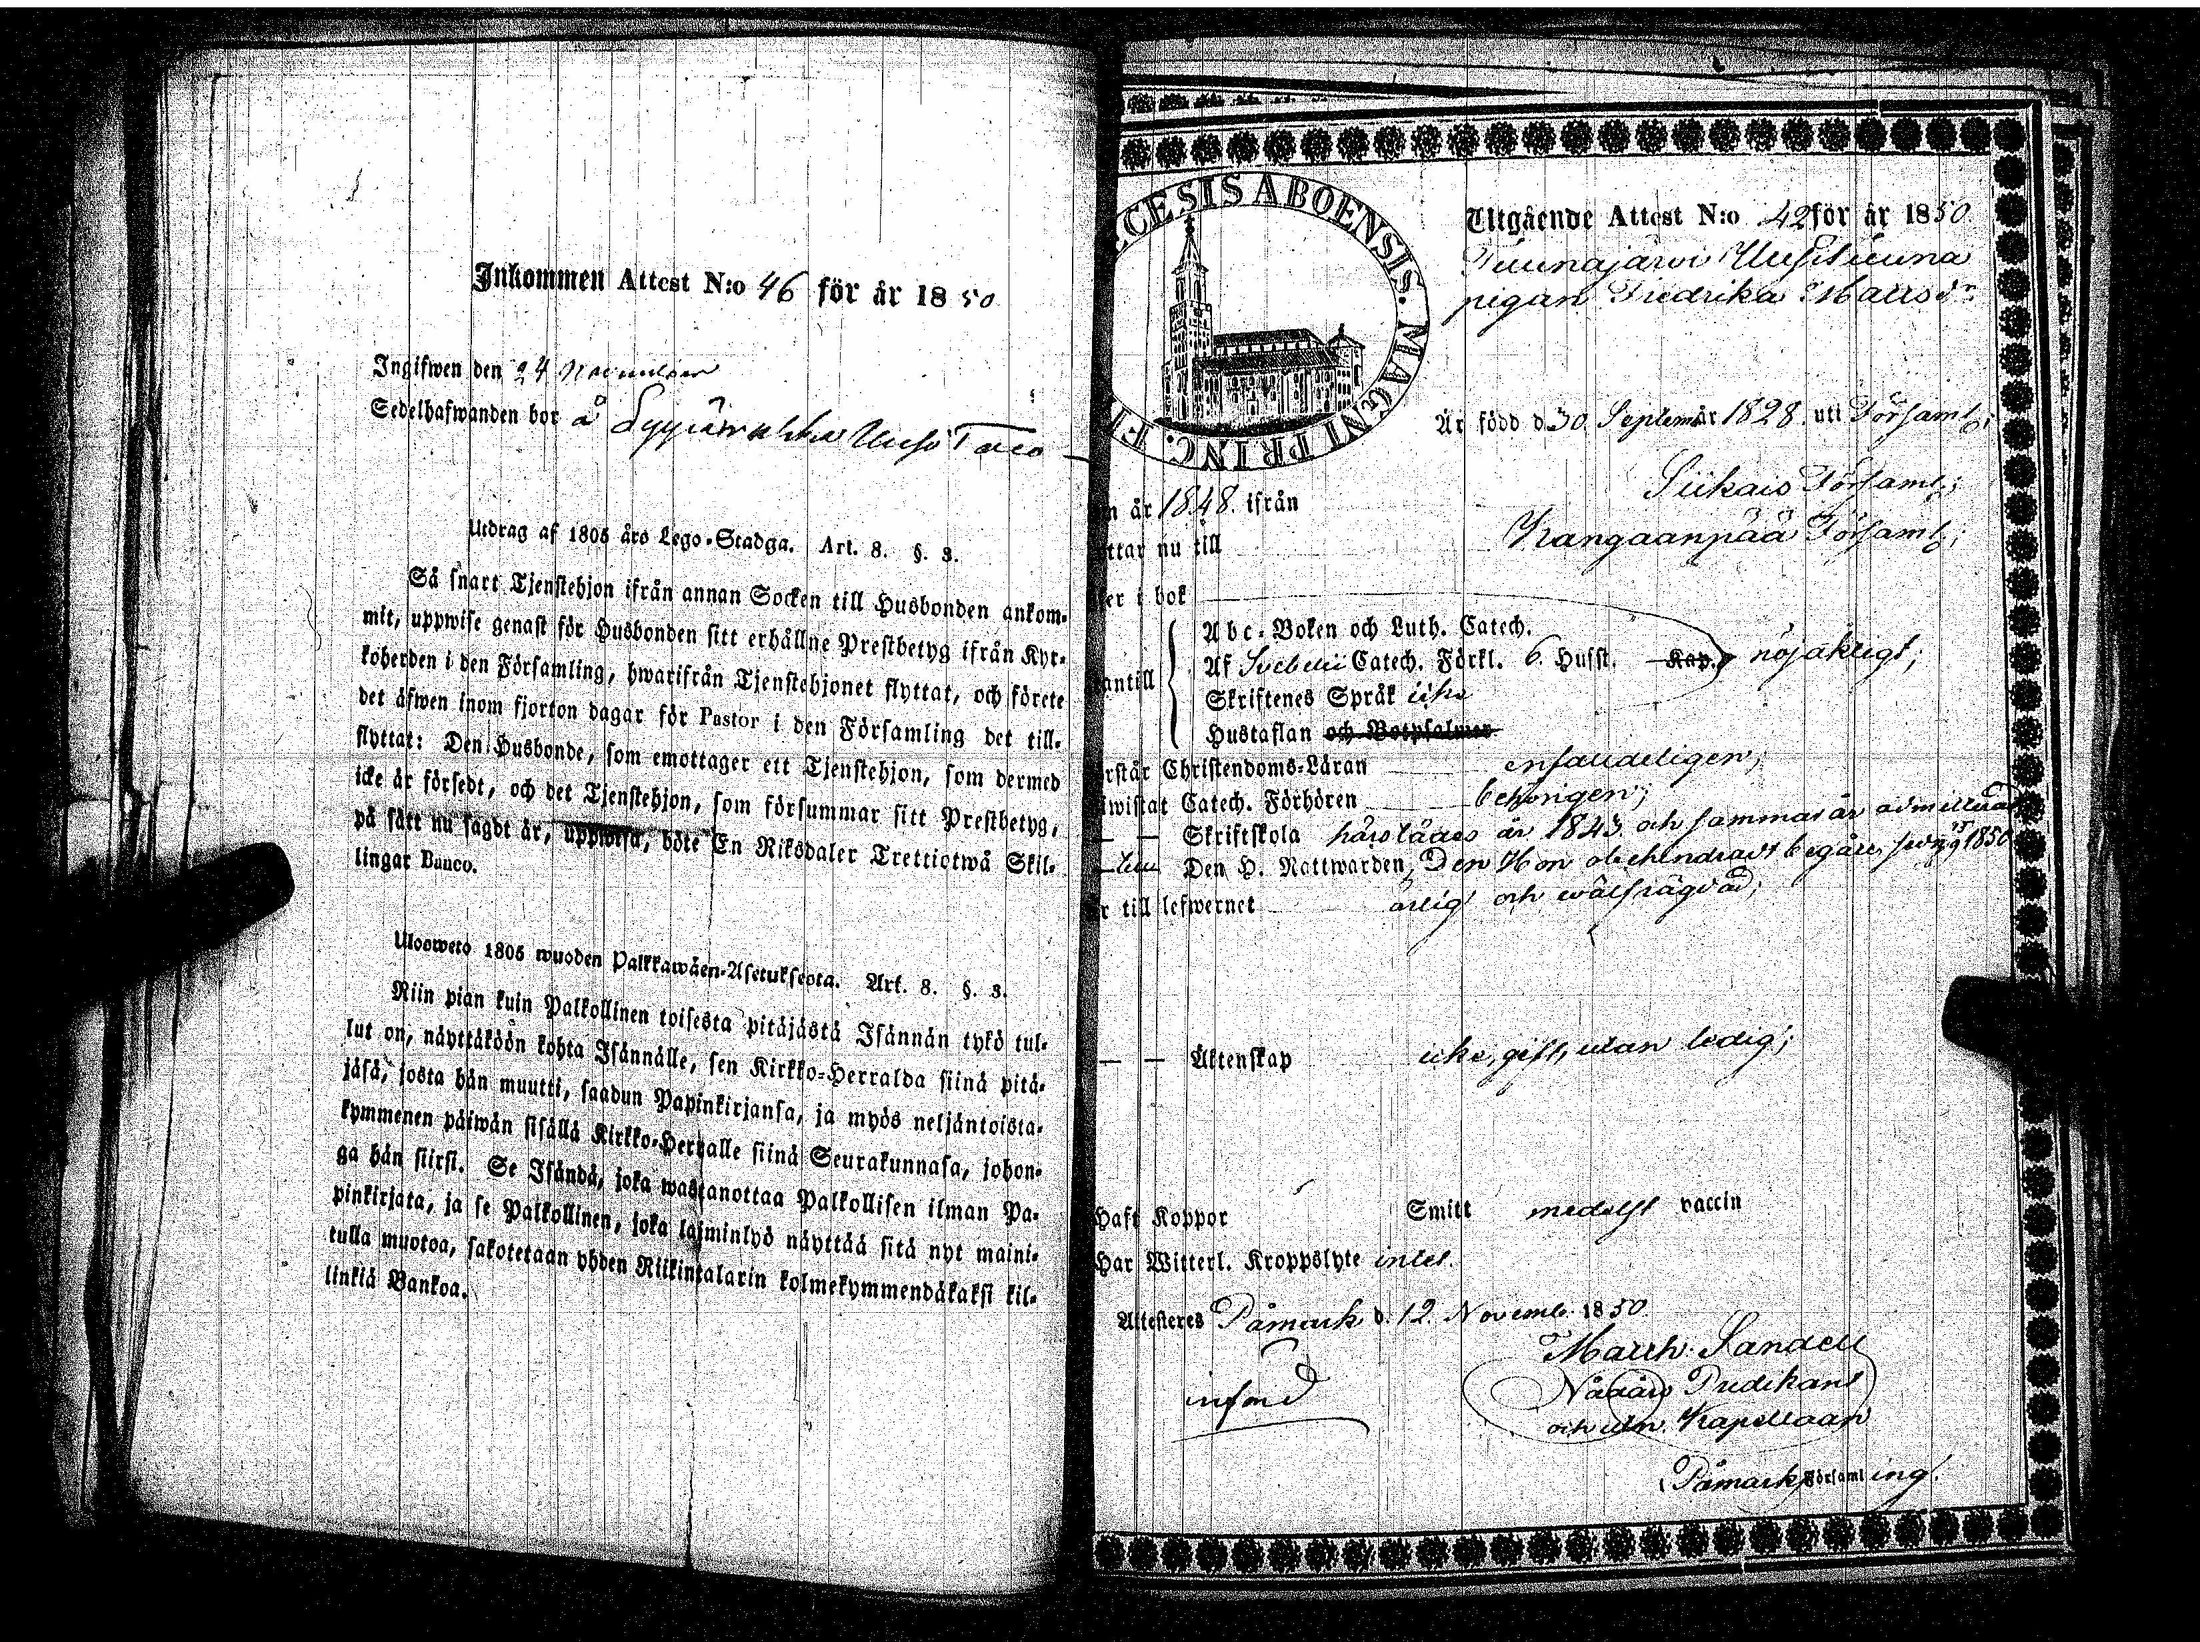 Inkommen Attest N:o 46 för år 1850
Ingifwen den 24 November
Sedelhafwanden bor å
Utdrag af 1805 års Lego-Stadga. Art. 8. §. 3.
Så snart Tjenstehjon ifrån annan Socken till Husbonden ankom-
mit, uppwise genast för Husbonden sitt erhållne Prestbetyg ifrån Kyr-
koherden i den Församling, hwarifrån Tjenstehjonet flyttat, och förete
det äfwen inom fjorton dagar för Pastor i den Församling det till-
flyttat: Den Husbonde, som emottager ett Tjenstehjon, som dermed
icke är försedt, och det Tjenstehjon, som försummar sitt Prestbetyg,
på sätt nu sagdt är, uppwisa, böte En Riksdaler Trettiotwå Skil-
lingar Banco.
Ulosweto 1805 wuoden Palkkawäen-Asetuksesta. Art. 8. §. 3.
Niin pian kuin Palkollinen toisesta pitäjästä Isännän tykö tul-
lut on, näyttäköön kohta Isännälle, sen Kirkko-Herralda siinä pitä-
jäsä, josta hän muutti, saadun Papinkirjansa, ja myös neljäntoista-
kymmenen päiwän sisällä Kirkko-Herralle siinä Seurakunnasa, johon-
ga hän siirsi. Se Isändä, joka wastanottaa Palkollisen ilman Pa-
pinkirjata, ja se Palkollinen, joka laiminlyö näyttää sitä nyt maini-
tulla muotoa, sakotetaan yhden Riikintalarin kolmekymmendäkaksi kil-
linkiä Bankoa.
CESIS ABOENSIS. MAGNI PRINC. FI
Utgående Attest N:o 42 för år 1850
pigan Fredrika Matts dr
Är född d. 30 Septem är 1828 uti Församl;
n år 1848. ifrån Siikais Församl;
ttar nu till Kangaanpää Församl;
er i bok
antill
Abc-Boken och Luth. Catech.
Af Svebelii Catech. Förkl. 6. Husst. Kap. nöjaktigt;
Skriftenes Språk icke
Hustaflan och Botpsalmer
rstår Christendoms-Läran enfaldeligen;
iwistat Catech. Förhören behörigen;
— — Skriftskola år 1843 och samma år admitterad
Den H. Nattwarden, Den Hon obehindradt begår, 1850
r till lefwernet ärlig och wälfrägdad;
— — Äktenskap icke gift, utan ledig;
Haft Koppor Smitt medelst vaccin
Har Witterl. Kroppslyte intet.
Attesteres Påmark d. 12. Novemb. 1850
Matth. Sandell
Predikant
och Kapellaan
Påmark Församl ing.